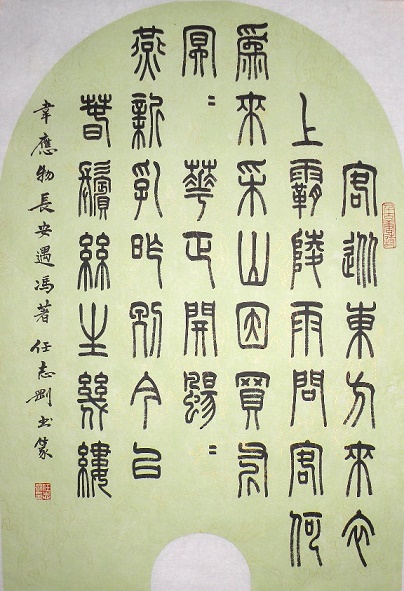 客從東方來衣
上霸陵雨問客何
爲來采山因買斧
冥〻華正開颺〻
燕新乳昨別今已
春鬢絲生幾縷
韋應物長安遇馮著 任志剛書篆